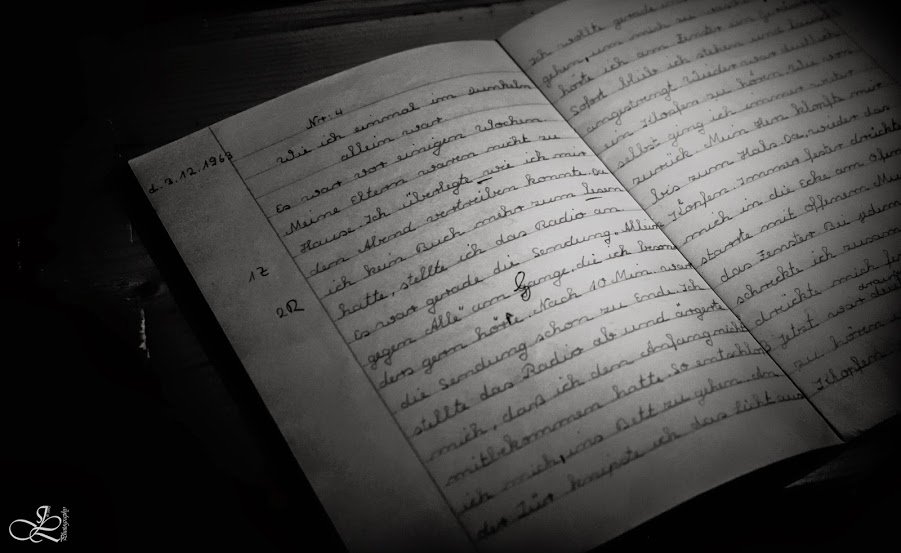 Nr. 4
d. 3.12.1963
Wie ich einmal im Dunkeln
allein war
Es war vor einigen Wochen
Meine Eltern waren nicht zu
Hause. Ich überlegte wie ich mir
den Abend vertreiben konnte. Da
ich kein Buch mehr zum lesen
hatte, stellte ich das Radio an
Es war gerade die Sendung „Allein
gegen Alle" am Gange, di ich beson
ders gern hörte. Nach 10 Min. war
die Sendung schon zu Ende. Ich
stellte das Radio ab und ärgerte
mich, daß ich den Anfang nicht
mitbekommen hatte. So entschloß
ich mich, ins Bett zu gehen. An
der Tür knipste ich das Licht aus
1Z
2R
Ich wollte gerade
gehen, um mich zu
hörte ich am Fenster ein
Sofort blieb ich stehen und
angestrengt. Wieder war deutlich
ein Klopfen zu hören. Wie von
selbst ging ich immer weiter
zurück. Mein Herz klopfte mir
bis zum Hals. Da, wieder das
Klopfen. Immer fester drückte
mich in die Ecke am Ofen
starrte mit offenem
das Fenster. Bei jedem
schreckte ich
drückte mich
Jetzt war
zu hören
Klopfen
Photography